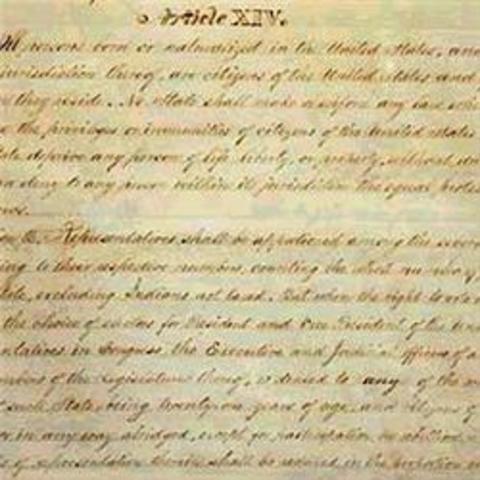 Article XIV.
All persons born or naturalized in the United States, and
jurisdiction thereof, are citizens of the United States and
they reside. No State shall make or enforce any law
the privileges or immunities of citizens of the United States
deprive any person of life, liberty, or property, without
deny to any person within its jurisdiction the equal
laws.
Representatives shall be apportioned among the several
to their respective numbers, counting the whole number of
State, excluding Indians not taxed. But when the right to vote
the choice of electors for President and Vice President of the
in Congress, the Executive and Judicial officers of a
of the Legislature thereof, is denied to any of the
such State, being twenty-one years of age, and citizens of
or in any way abridged, except for participation in rebellion,
of representation therein shall be reduced in the proportion